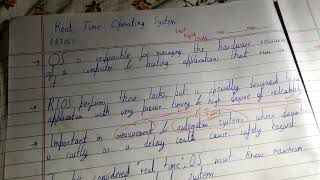 Real Time Operating System
(RTOS)
→ OS is responsible for managing the hardware resources
of a computer & hosting applications that run
→ RTOS perform these tasks, but is specially designed
application with very precise timing & high degree of reliability
→ Important in measurement & automation systems where
is costly or a delay could cause safety hazard
To be considered "real time", OS must know maximum
system